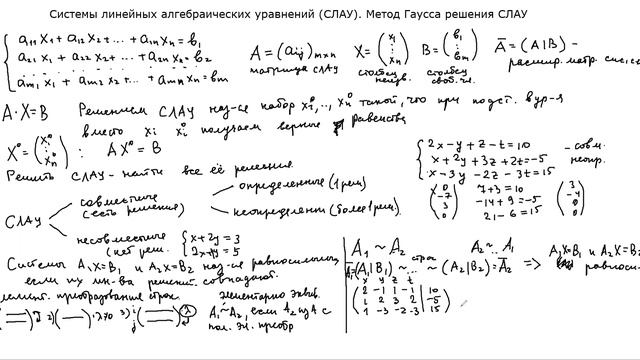 Системы линейных алгебраических уравнений (СЛАУ). Метод Гаусса решения СЛАУ
a₁₁x₁+a₁₂x₂+...+a₁ₙxₙ=b₁
a₂₁x₁+a₂₂x₂+...+a₂ₙxₙ=b₂
aₘ₁x₁+aₘ₂x₂+...+aₘₙxₙ=bₘ
A=(aᵢⱼ)ₘₓₙ X=(x₁ ⋮ xₙ) B=(b₁ ⋮ bₘ) Ā=(A|B) –
матрица СЛАУ столбец неизв. столбец своб. чл. расшир. матр.
A·X=B Решением СЛАУ наз-ся набор x₁⁰,..,xₙ⁰ такой, что при подст. в ур-я
вместо xᵢ xᵢ⁰ получаем верные равенства
X⁰=(x₁⁰ ⋮ xₙ⁰) : AX⁰=B
Решить СЛАУ – найти все её решения
СЛАУ
совместные (есть решения)
определенные (1 реш)
неопределенн (более 1 реш).
несовместные (нет реш.
x+2y=3
=5
2x-y+z-t=10
x+2y+3z+2t=-5
x-3y-2z-3t=15
– совм. неопр.
(0 -7 3 0) 7+3=10 (3 -4 0 0)
-14+9=-5
21-6=15
Системы A₁X=B₁ и A₂X=B₂ наз-ся равносильными,
если их мн-ва решений совпадают.
преобразования строк
1) 2) 3)
элементарно эквив.
A₁~A₂, если A₂ из A с
пом. эл. преобр
A₁~A₂ A₂~A₁
Ā₁=(A₁|B₁) ~...~ (A₂|B₂)=Ā₂ => A₁X=B₁ и A₂X=B₂
строк равноси
x y z t
2 -1 1 -1 | 10
1 2 3 2 | -5
1 -3 -2 -3 | 15